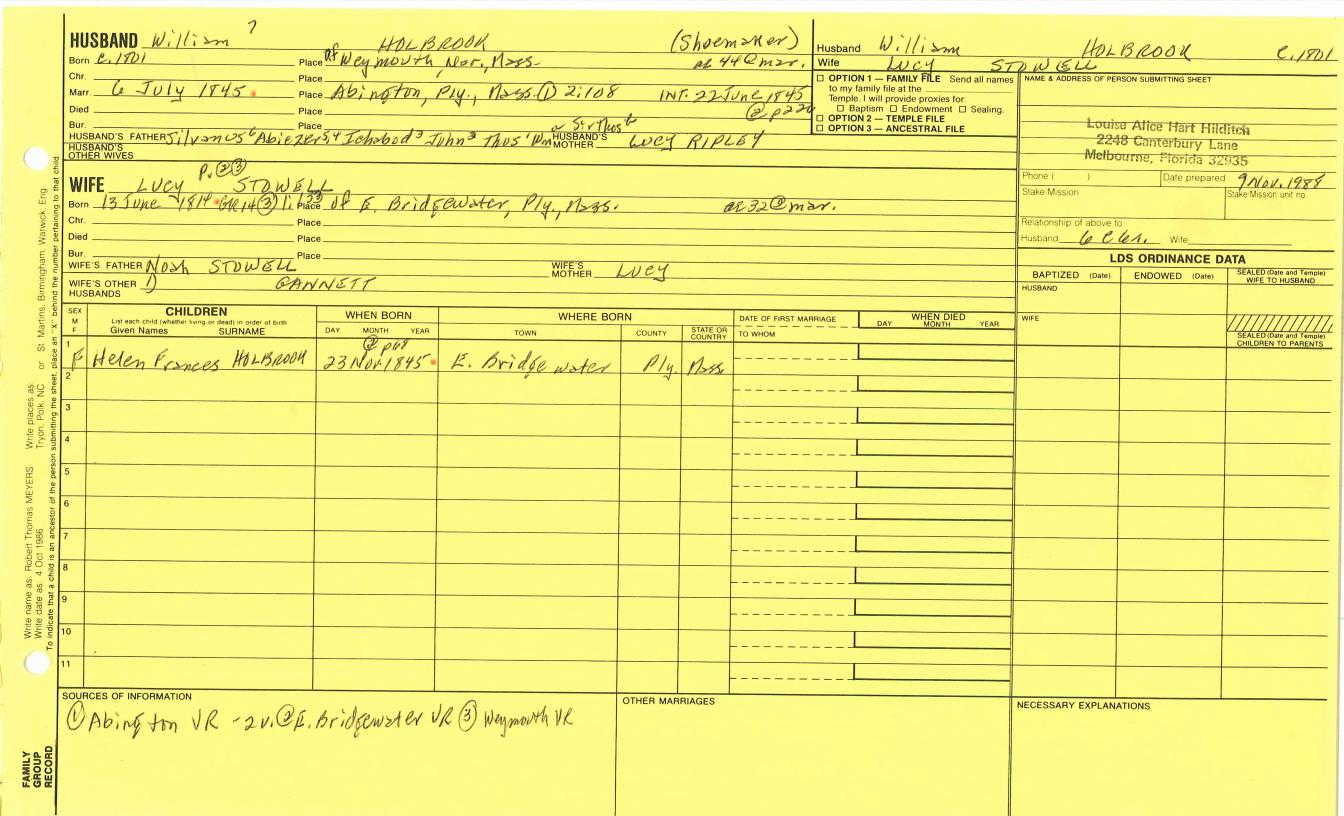 HUSBAND William 7 HOLBROOK (Shoemaker)
Born c.1801 Place of Weymouth, Nor., Mass. ae 44 @ mar.
Chr. Place
Marr. 6 July 1845 Place Abington, Ply., Mass. ① 2:108 INT. 22 June 1845
② p220
Died Place
Bur. Place
HUSBAND'S FATHER Silvanus⁶ Abiezer⁵,⁴ Ichabod³ John³ Thos² Wm HUSBAND'S MOTHER LUCY RIPLEY
HUSBAND'S OTHER WIVES
p. ② ③
WIFE LUCY STOWELL
Born 13 June 1814 GR14 ③ 1: Place of E. Bridgewater, Ply, Mass. ae 32 @ mar.
Chr. Place
Died Place
Bur. Place
WIFE'S FATHER Noah STOWELL WIFE'S MOTHER LUCY
WIFE'S OTHER HUSBANDS 1) GANNETT
Husband William HOLBROOK c.1801
Wife LUCY STOWELL
☐ OPTION 1 — FAMILY FILE Send all names
to my family file at the
Temple. I will provide proxies for
☐ Baptism ☐ Endowment ☐ Sealing.
☐ OPTION 2 — TEMPLE FILE
☐ OPTION 3 — ANCESTRAL FILE
NAME & ADDRESS OF PERSON SUBMITTING SHEET
Louise Alice Hart Hilditch
2248 Canterbury Lane
Melbourne, Florida 32935
Phone ( ) Date prepared 9 Nov. 1988
Stake Mission Stake Mission unit no.
Relationship of above to
Husband 6 C 6 r. Wife
LDS ORDINANCE DATA
BAPTIZED (Date) ENDOWED (Date) SEALED (Date and Temple) WIFE TO HUSBAND
HUSBAND
WIFE
SEALED (Date and Temple) CHILDREN TO PARENTS
SEX M F
CHILDREN
List each child (whether living or dead) in order of birth
Given Names SURNAME
WHEN BORN
DAY MONTH YEAR
WHERE BORN
TOWN COUNTY STATE OR COUNTRY
DATE OF FIRST MARRIAGE
TO WHOM
WHEN DIED
DAY MONTH YEAR
② p68
1 F Helen Frances HOLBROOK 23 Nov 1845 E. Bridgewater Ply. Mass
2
3
4
5
6
7
8
9
10
11
SOURCES OF INFORMATION
① Abington VR - 2v. ② E. Bridgewater VR ③ Weymouth VR
OTHER MARRIAGES
NECESSARY EXPLANATIONS
Write name as: Robert Thomas MEYERS Write places as: Tryon, Polk, NC or St Martins, Birmingham, Warwick, Eng.
Write date as: 4 Oct 1986
To indicate that a child is an ancestor of the person submitting the sheet, place an "X" behind the number pertaining to that child
FAMILY
GROUP
RECORD